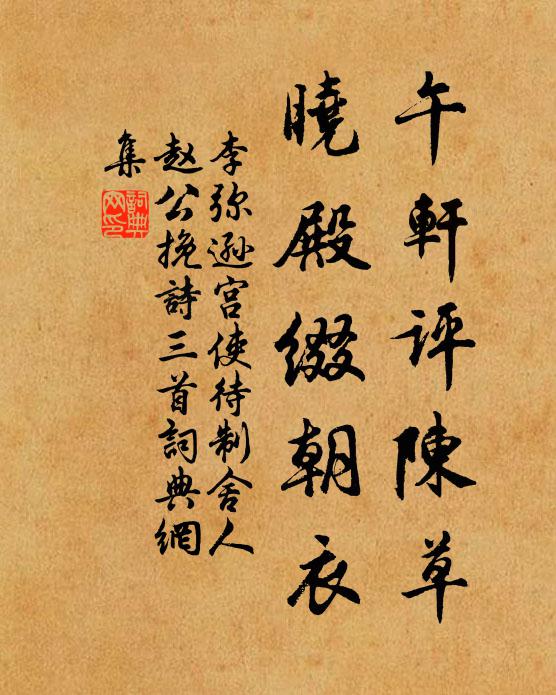 午軒評陳草
曉殿綴朝衣
李弥遜宫使待制舍人
赵公挽詩三首詞典網
集
詞典網印